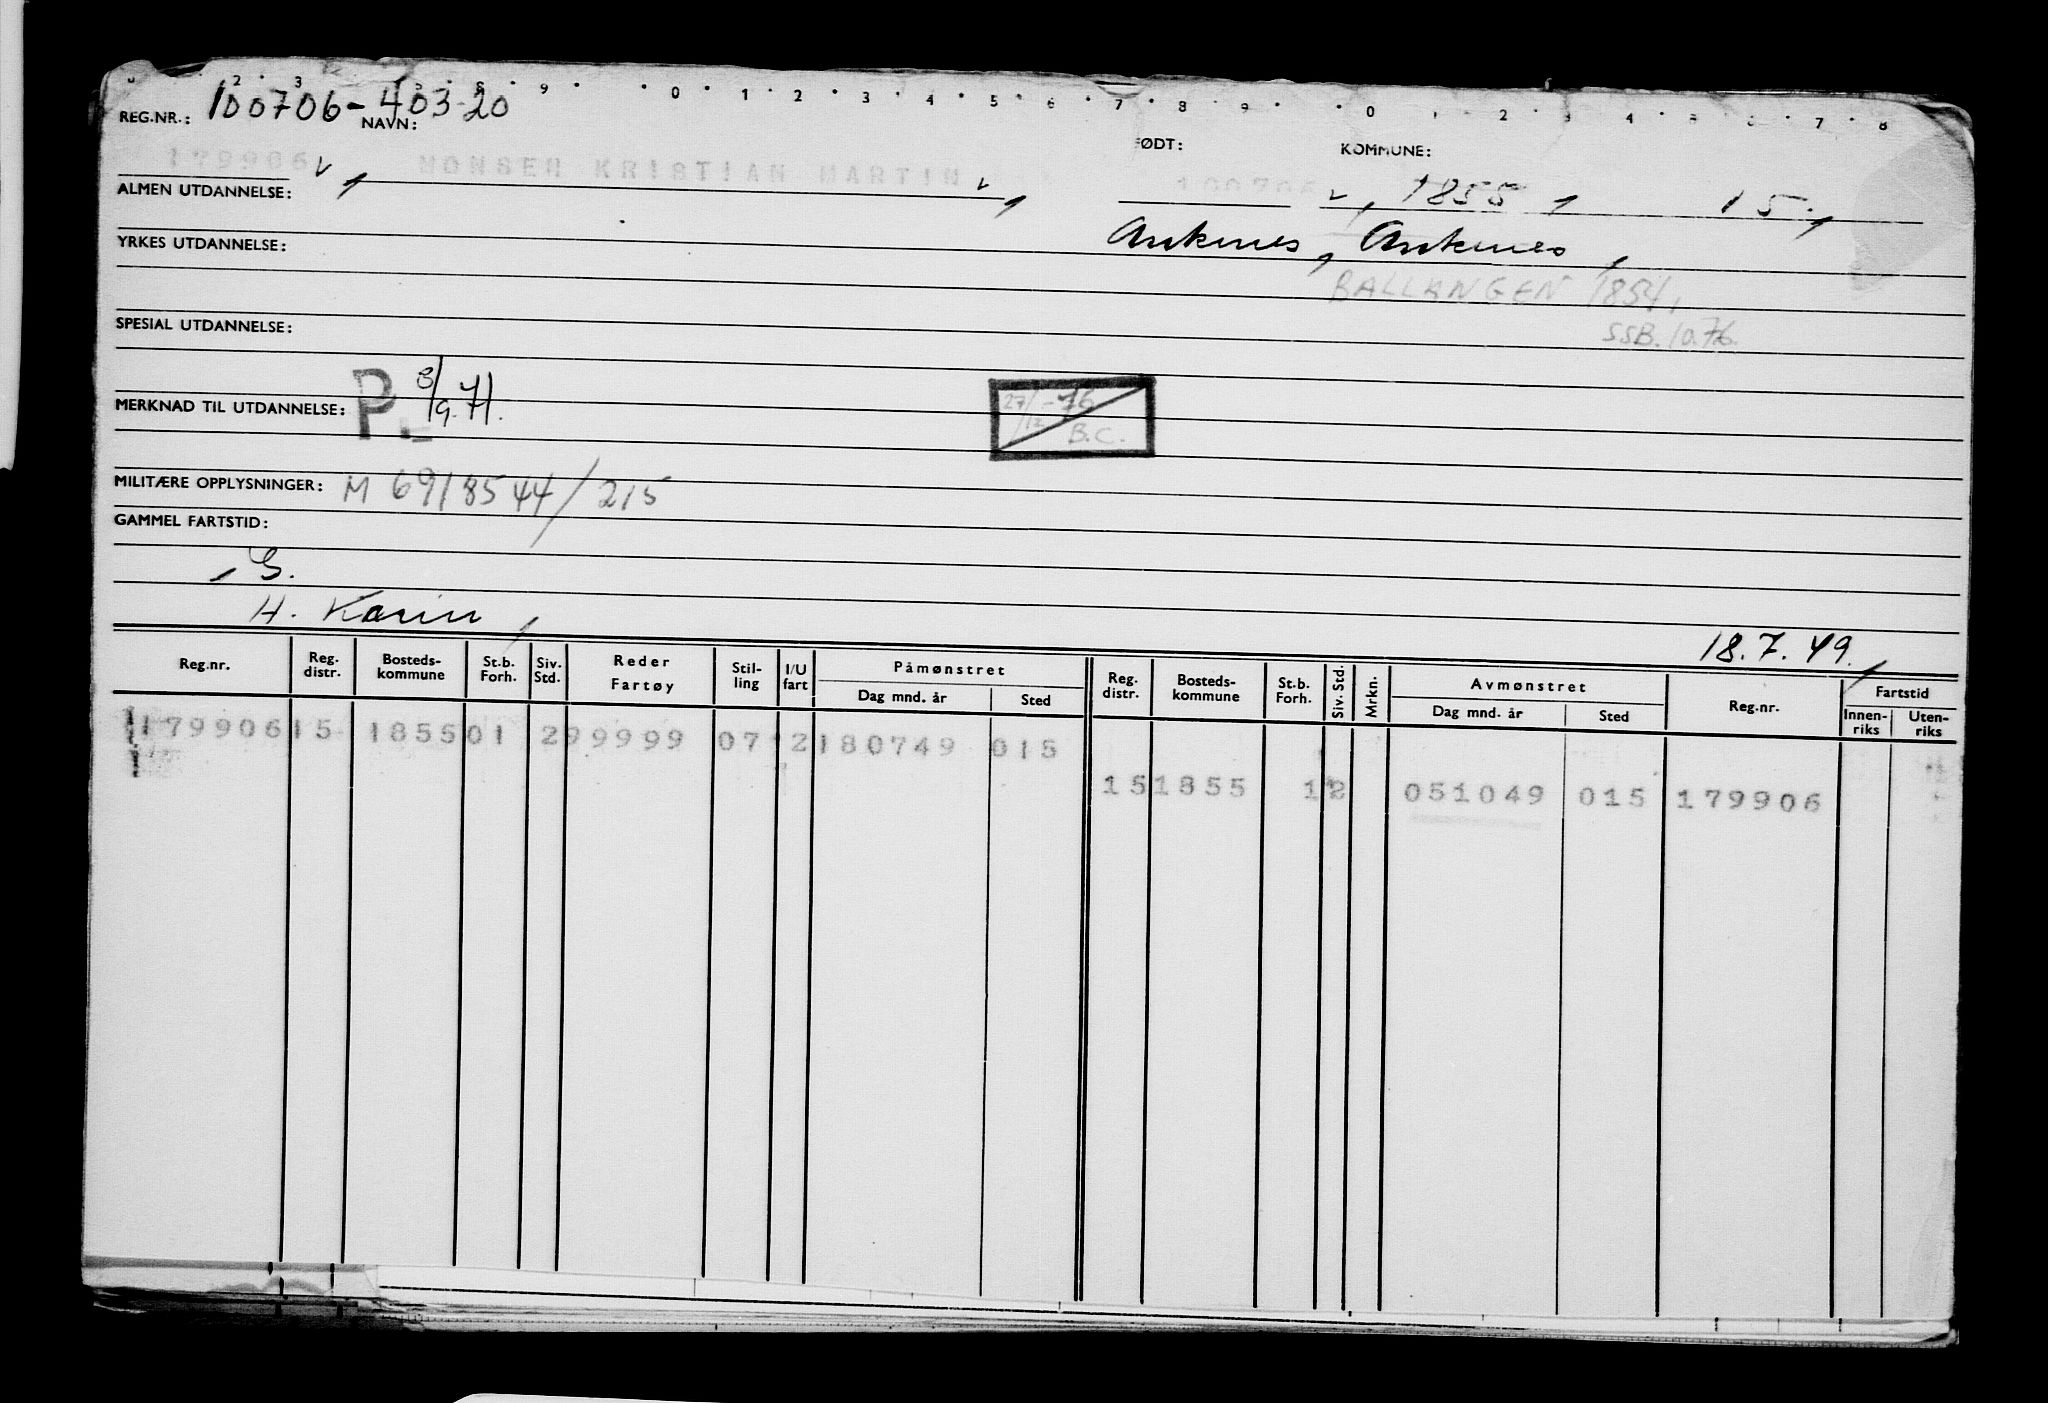 REG.NR.: 100706-40320
NAVN:
FØDT:
KOMMUNE:
179906 KRISTIAN MARTIN 100706 1855, 15.,
ALMEN UTDANNELSE:
Ankenes, Ankenes,
YRKES UTDANNELSE:
BALLANGEN 1854,
SSB. 10.76.
SPESIAL UTDANNELSE:
MERKNAD TIL UTDANNELSE: P. 8/9.71.
27/12 -76
B.C.
MILITÆRE OPPLYSNINGER: M 6918544/215
GAMMEL FARTSTID:
G.
H. Karin,
18.7.49.,
Reg.nr. Reg. distr. Bosteds-kommune St.b. Forh. Siv. Std. Reder Fartøy Stil-ling I/U fart Påmønstret Dag mnd. år Sted Reg. distr. Bosteds-kommune St.b. Forh. Siv. Std. Mrkn. Avmønstret Dag mnd. år Sted Reg.nr. Fartstid Innen-riks Uten-riks
179906 15 1855 01 2 99999 07 2 180749 015
15 1855 1 2 051049 015 179906